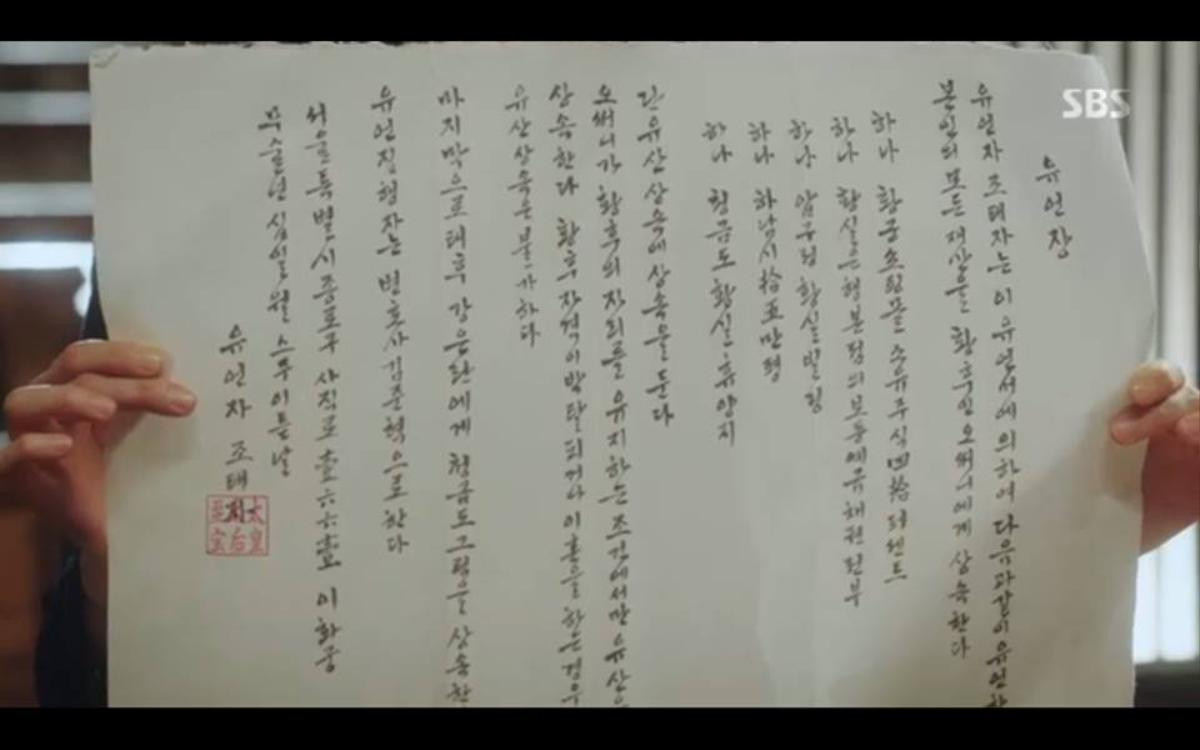 SBS
유언장
유언자 조태자는 이 유언서에 의하여 다음과 같이 유언하
본인의 모든 재산을 황후인 오써니에게 상속한다
하나 황궁 소펜몰 소유주식 四拾 퍼센트
하나 황실은행 본점의 보통예금 채권 전부
하나 압구정 황실빌딩
하나 하남시 拾五만평
하나 청금도 황실 휴양지
단 유산 상속에 상속물 둔다
오써니가 황후의 자리를 유지하는 조건에서만 유산
상속한다 황후 자격이 박탈되거나 이혼을 하는 경우
유산상속은 불가하다
마지막으로 태후 강은란에게 청금도 그림을 상속한
유언집행자는 변호사 김준혁으로 한다
서울특별시 종로구 사직로 壹六六壹 이화궁
무술년 십일월 스무이튿날
유언자 조태
太皇
后
宝